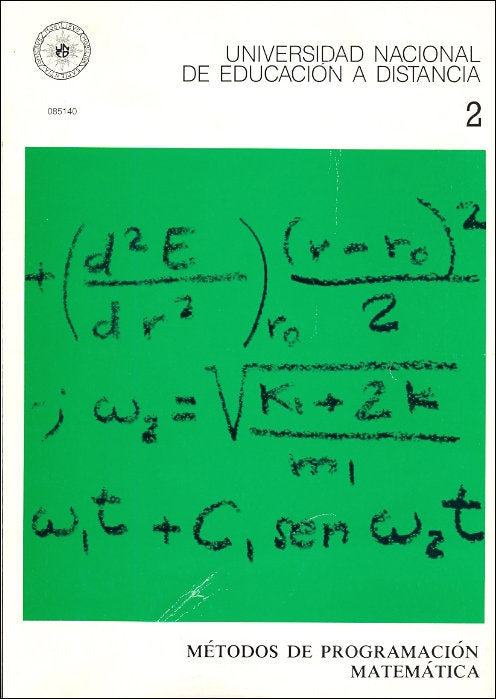 UNIVERSIDAD NACIONAL
DE EDUCACIÓN A DISTANCIA
085140
2
+ (d²E / dr²)r₀ (r - r₀)² / 2
; ω₂ = √(K₁ + 2k / m₁)
ω₁t + C₁ sen ω₂t
MÉTODOS DE PROGRAMACIÓN
MATEMÁTICA